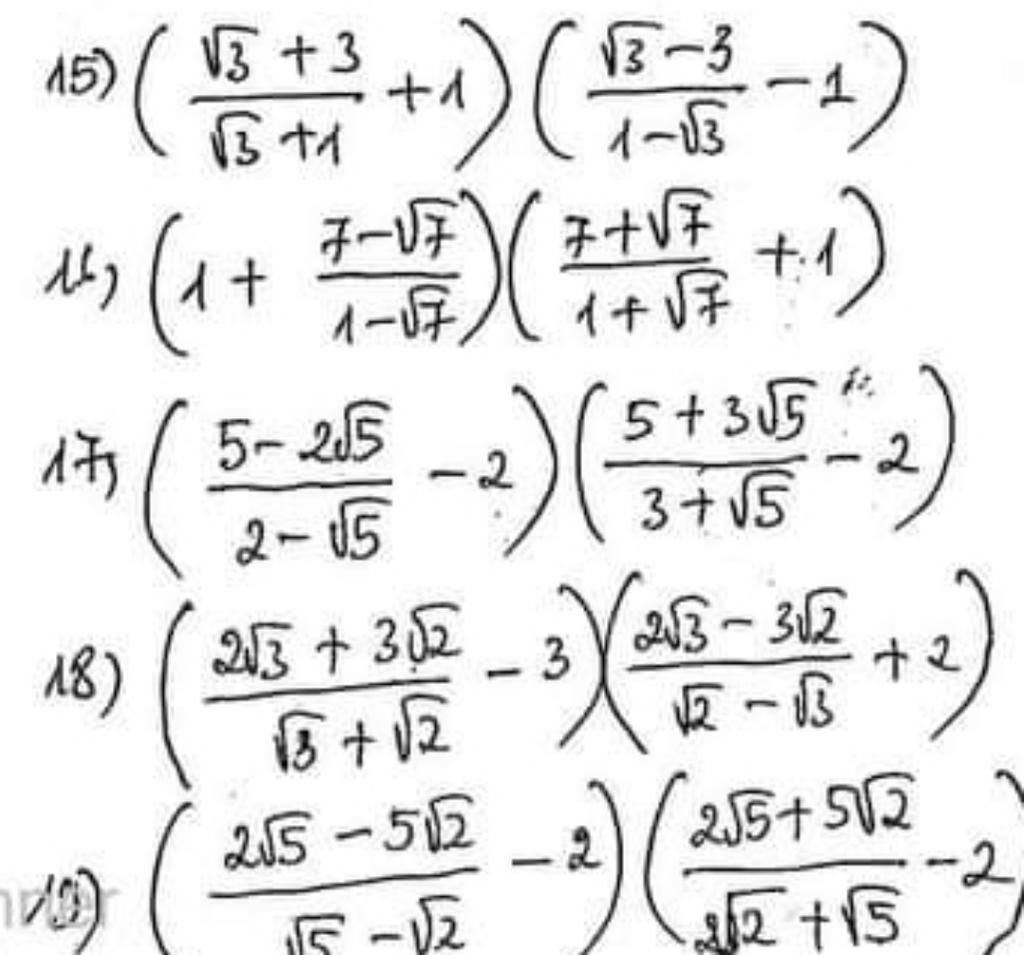 15) ( (√3 + 3)/(√3 + 1) + 1 ) ( (√3 − 3)/(1 − √3) − 1 )
16) ( 1 + (7 − √7)/(1 − √7) ) ( (7 + √7)/(1 + √7) + 1 )
17) ( (5 − 2√5)/(2 − √5) − 2 ) ( (5 + 3√5)/(3 + √5) − 2 )
18) ( (2√3 + 3√2)/(√3 + √2) − 3 ) ( (2√3 − 3√2)/(√2 − √3) + 2 )
19) ( (2√5 − 5√2)/(√5 − √2) − 2 ) ( (2√5 + 5√2)/(√2 + √5) − 2 )